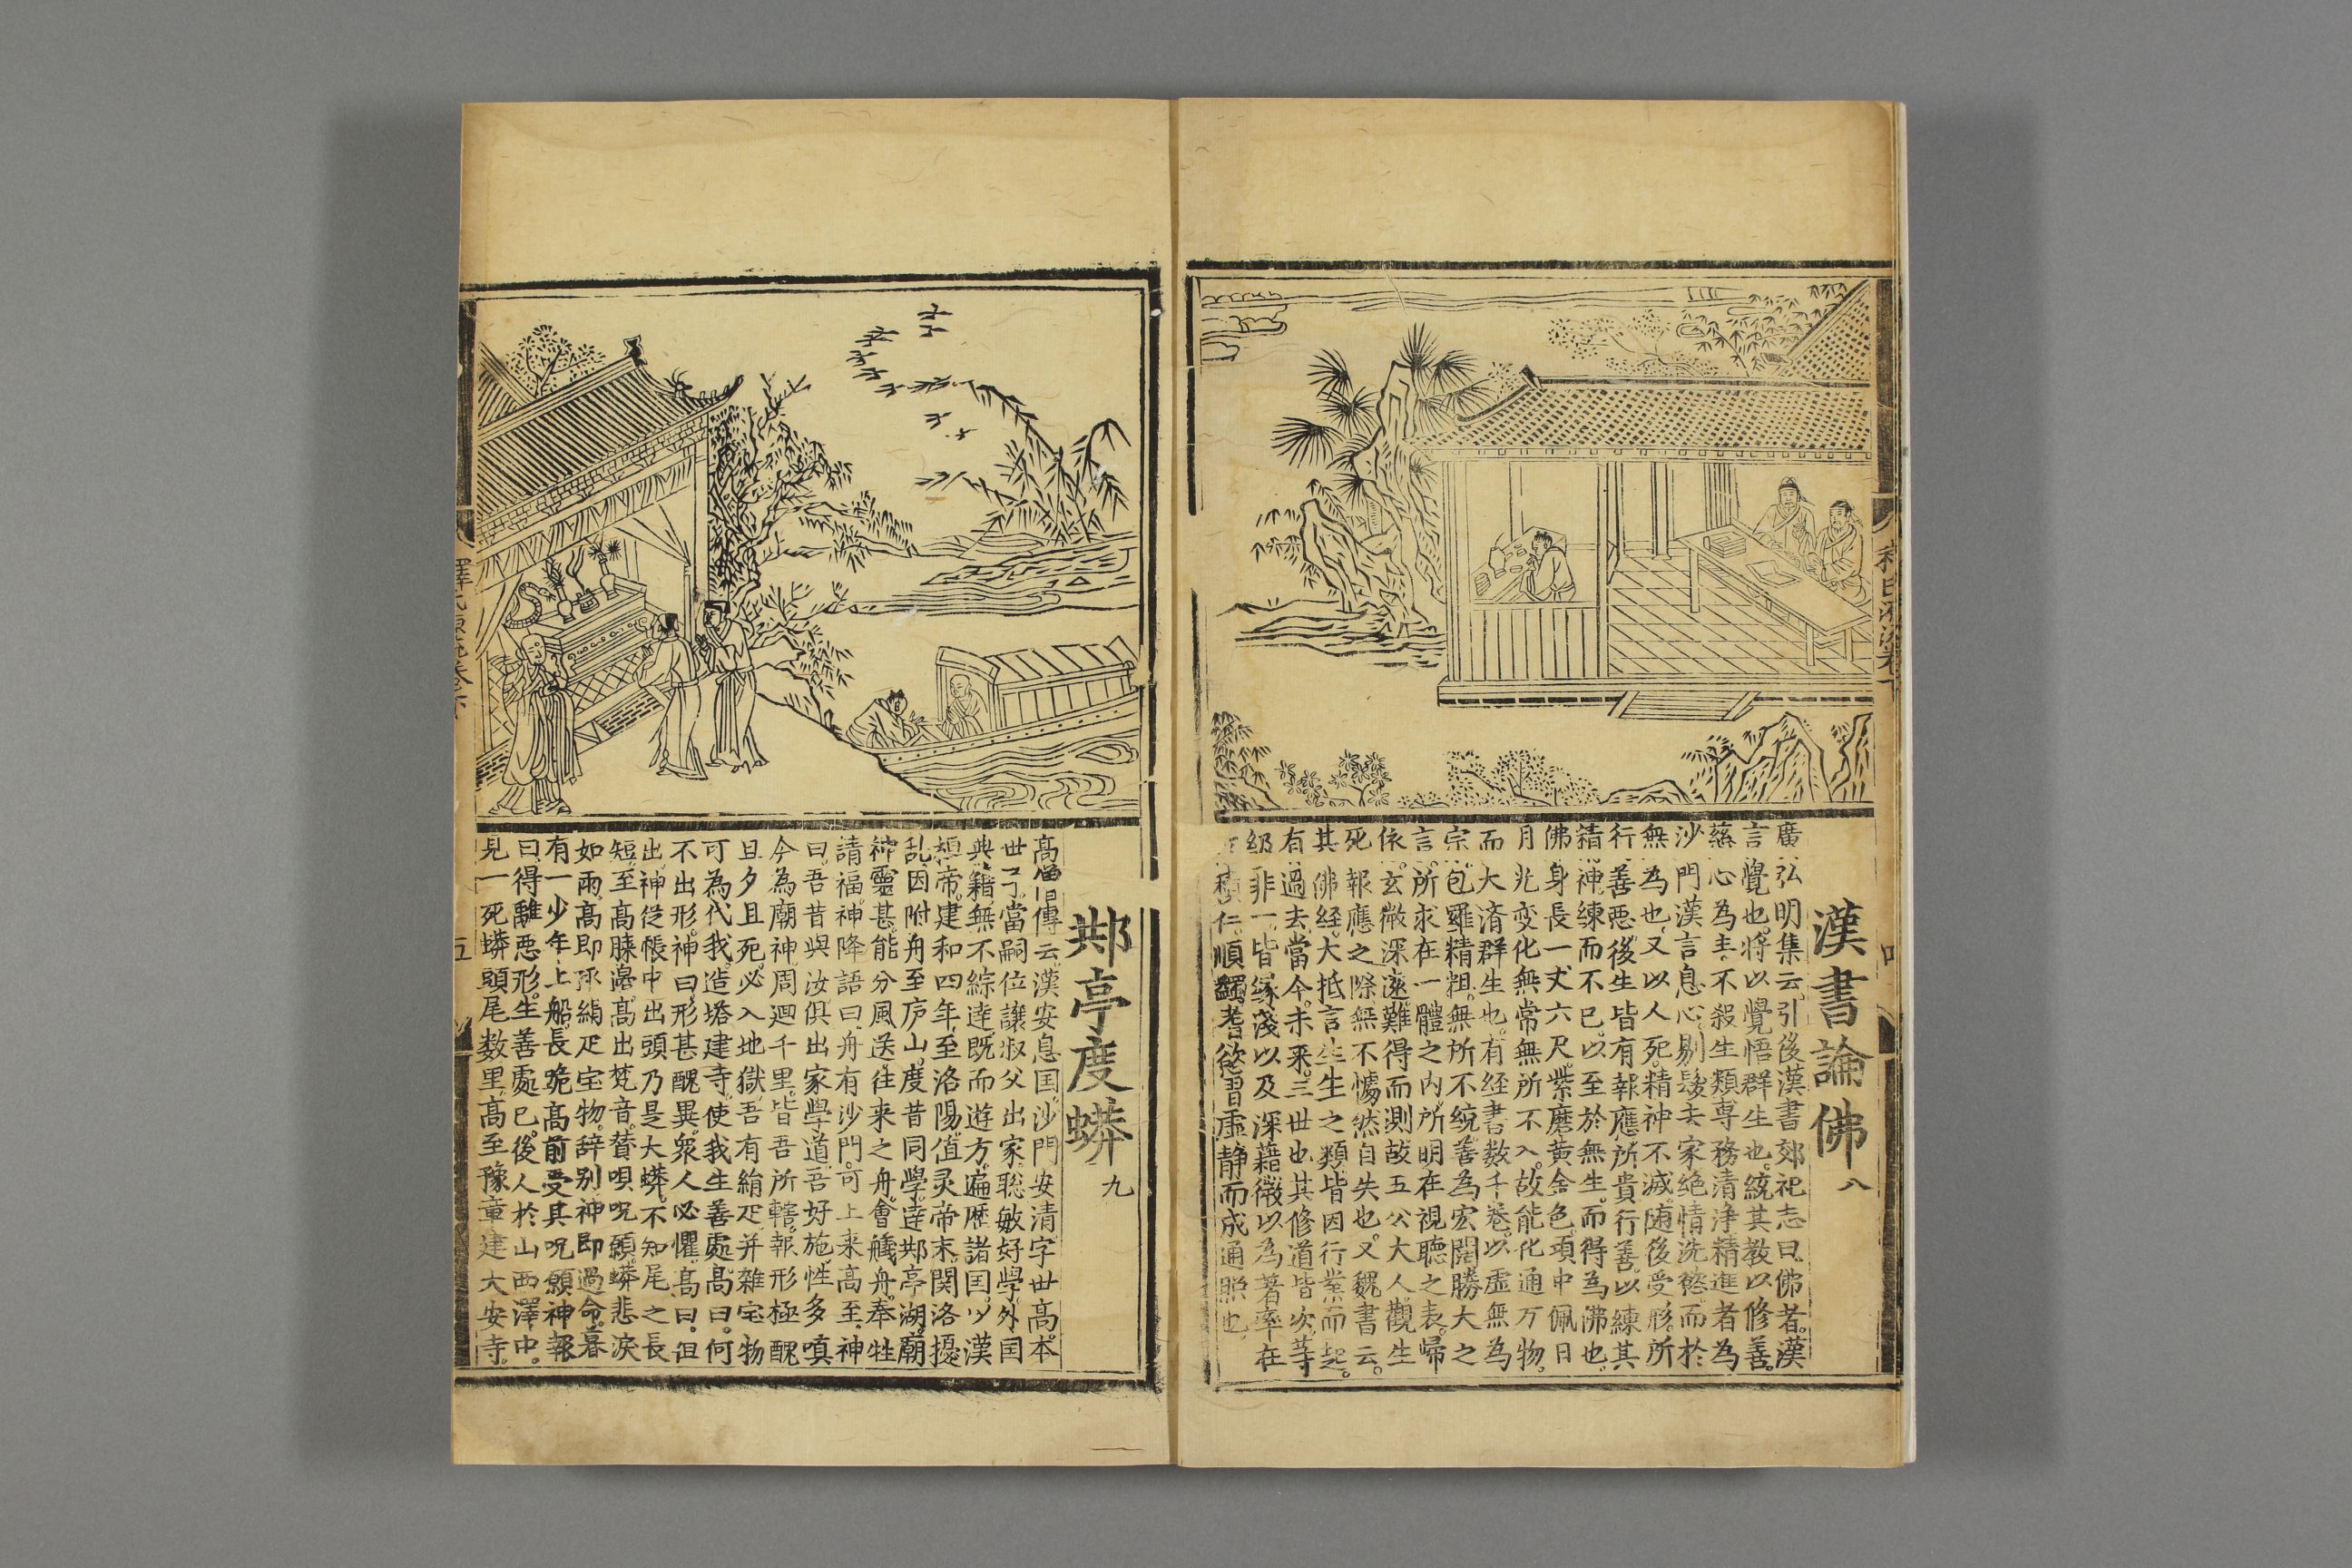 漢書論佛 八
廣弘明集云引後漢書郊祀志曰佛者漢
言覺也将以覺悟群生也統其教以修善
慈心為主不殺生類專務清浄精進者為
沙門漢言息心剔髮去家绝情洗慾而於
無為也又以人死精神不滅随後受形所
行善恶後生皆有報應所貴行善以練其
精神練而不已以至於無生而得為佛也
佛身長一丈六尺紫磨黄金色項中佩日
月光变化無常無所不入故能化通万物
而大済群生也有经書数千卷以虚無為
宗包羅精粗無所不統善為宏闊勝大之
言所求在一體之内所明在視聽之表歸
依玄微深遠難得而測故五公大人觀生
死報應之際無不懼然自失也又魏書云
其佛经大抵言生生之類皆因行業而起
有過去當今未来三世也其修道皆次等
级非一皆缘淺以及深藉微以為著率在
積仁順蠲耆慾習虚静而成通照也
邾亭度蟒 九
高僧傳云漢安息囯沙門安清字世高本
世子當嗣位讓叔父出家聡敏好學外囯
典籍無不綜達既而遊方遍歷諸囯以漢
桓帝建和四年至洛陽值灵帝末関洛擾
乱因附舟至庐山度昔同學達邾亭湖廟
神靈甚能分風送往来之舟會艤舟奉牲
請福神降語曰舟有沙門可上来高至神
曰吾昔與汝俱出家學道吾好施性多嗔
今為廟神周迴千里皆吾所轄報形極醜
旦夕且死必入地獄吾有絹疋并雜宝物
可為代我造塔建寺使我生善處高曰何
不出形神曰形甚醜異衆人必懼高曰但
出神從帳中出頭乃是大蟒不知尾之長
短至高膝邊高出梵音賛唄呪願蟒悲淚
如雨高即承絹疋宝物辞别神即過命暮
有一少年上船長跪高前受其呪願神報
曰得離恶形生善處已後人於山西澤中
見一死蟒頭尾数里高至豫章建大安寺
釋氏源流卷六
五